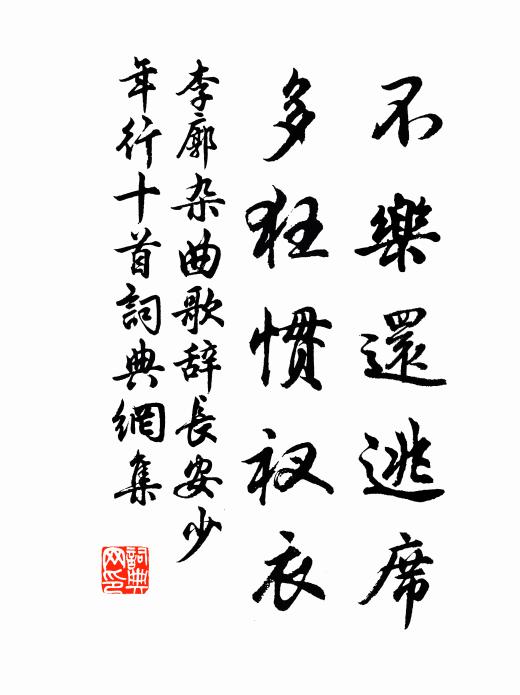 不樂還逃席
多狂慣衩衣
李廓杂曲歌辞長安少
年行十首詞典網集
詞典
网印